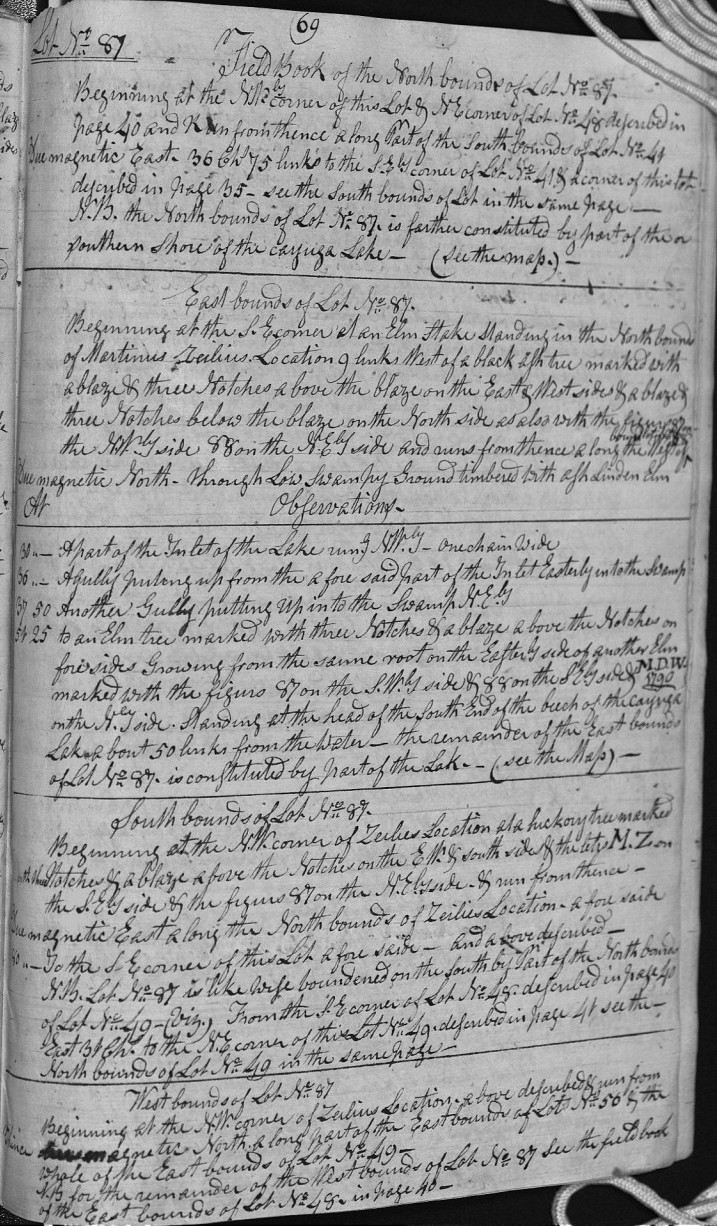 69
Lot No. 87
Field Book of the North bounds of Lot No. 87.
Beginning at the N.Wly corner of this Lot & N.E corner of Lot No. 48 described in
page 40 and Run from thence along Part of the South bounds of Lot No. 41
Due magnetic East. 36 Chs 75 links to the S.Ely corner of Lot No. 41 & a corner of this lot
described in page 35 – see the South bounds of Lot in the same page —
N.B. the North bounds of Lot No. 87. is farther constituted by part of the or
southern Shore of the cayuga Lake – (see the map.) –
East bounds of Lot No. 87.
Beginning at the S. E corner at an Elm Stake standing in the North bounds
of Martinus Zeilius Location 9 links West of a black ash tree marked with
a blaze & three Notches above the blaze on the East & West side & a blaze &
three Notches below the blaze on the North side as also with the figurs 87 on
the N.Wly side 88 on the N.Ely side and runs from thence along the West
bounds of
Due magnetic North – through Low Swampy Ground timbered with ash Linden Elm
At Observations –
30 „ – A part of the Inlet of the Lake rung N.Wly – one chain Wide
36 „ – A gully puting up from the afore said part of the Inlet Easterly into the Swamp
37 50 Another Gully putting Up into the Swamp N. Ely
51 25 to an Elm tree marked with three Notches & a blaze above the Notches on
fore sides Growing from the same root on the Easterly side of another Elm
marked with the figurs 87 on the S.Wly side & 88 on the S Ely side & M.D.W.
1790
on the N.ly side. Standing at the head of the South End of the beech of the cayuga
Lake about 50 links from the Water – the remainder of the East bounds
of Lot No. 87. is constituted by part of the Lak. – (see the Map) –
South bounds of Lot No. 87.
Beginning at the N.W. corner of Zeilies Location at a hickory tree marked
with three Notches & a blaze above the Notches on the E. W. & south side & the letrs M. Z on
the S. Ely side & the figurs 87 on the N. Ely side. & run from thence –
Due magnetic East along the North bounds of Zeilies Location afore saide
„ – To the S. E corner of this Lot afore saide – and above described –
N.B. Lot No. 87 is like wise boundered on the South by Part of the North bounds
of Lot No. 49 – (Viz.) From the S. E corner of Lot No. 48 described in page 40
East 31 Chs. to the N. E corner of this Lot No. 49 described in page 41 see the –
North bounds of Lot No. 49 in the same page –
West bounds of Lot No. 87
Beginning at the N.W. corner of Zeilius Location above described & run from
thence magnetic North along part of the East bounds of Lot No. 50 & the
whole of the East bounds of Lot No. 49 –
N.B for the remainder of the West bounds of Lot No. 87 see the field book
of the East bounds of Lot No. 48. in page 40 –